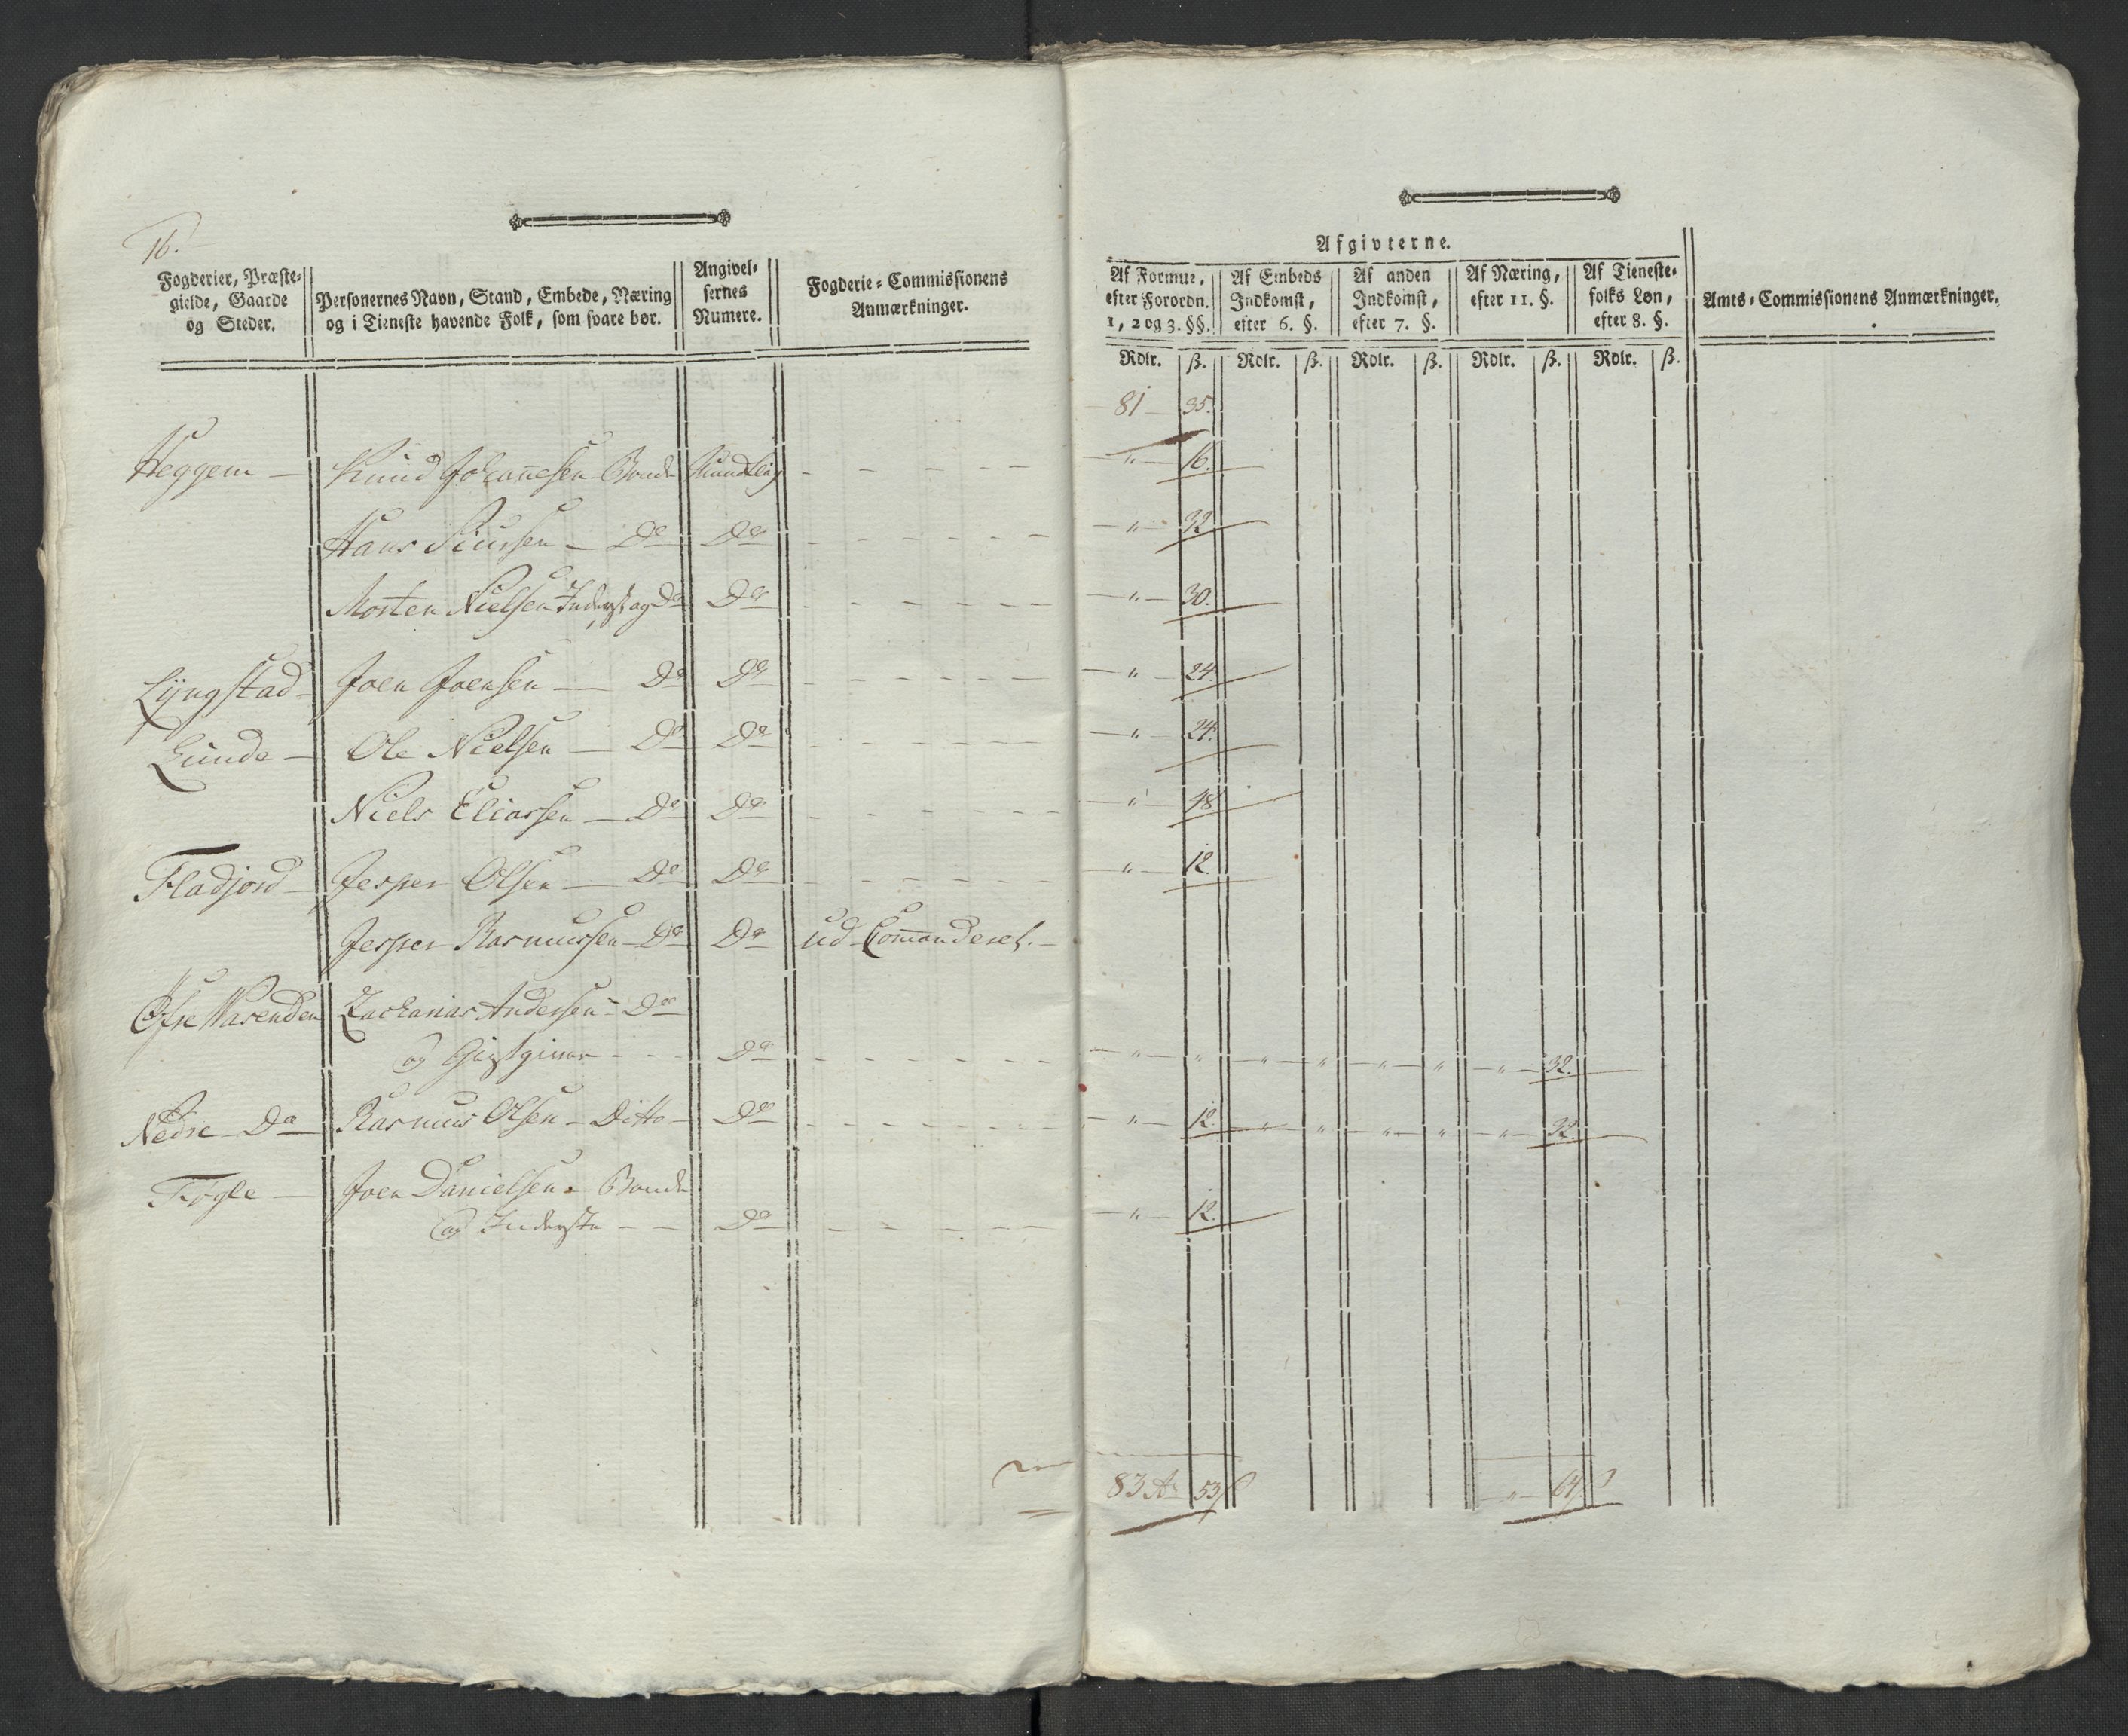 16.
Fogderier, Præste-
gielde, Gaarde
og Steder.
Personernes Navn, Stand, Embede, Næring
og i Tieneste havende Folk, som svare bør.
Angivel-
sernes
Numere.
Fogderie-Commissionens
Anmærkninger.
Afgivterne.
Af Formue,
efter Forordn.
1, 2 og 3. §§.
Af Embeds
Indkomst,
efter 6. §.
Af anden
Indkomst,
efter 7. §.
Af Næring,
efter 11. §.
Af Tieneste-
folks Løn,
efter 8. §.
Amts-Commissionens Anmærkninger.
Rdlr. ß. Rdlr. ß. Rdlr. ß. Rdlr. ß. Rdlr. ß.
81 — 35.
Heggem — Knud Johannesen Bonde Mundtlig - - - - - — " — 16.
Hans Siursen — Do Do - - - - - — " — 32
Morten Nielsen Inderst og Do Do - - - - - — " — 30.
Lÿngstad — Joen Joensen — Do Do - - - - - — " — 24
Lunde — Ole Nielsen — Do Do - - - - - — " — 24.
Niels Eliassen — Do Do - - - - - — " — 48
Fladjord — Jesper Olsen — Do Do - - - - - — " — 12.
Jesper Rasmussen — Do Do ud Commanderet. —
Øfre Wasenden Zacharias Andersen — Do
og Giestgiver - - - Do - - - - - — " — " — " — " — " — " — " — 32.
Nedre Do Rasmus Olsen — Ditto — Do - - - - - — " — 12. — " — " — " — " — " — 32
Fogle — Joen Danielsen - Bonde
og Inderste — — Do - - - - - — " — 12.
83 Rd 53 ß — " — 64 ß